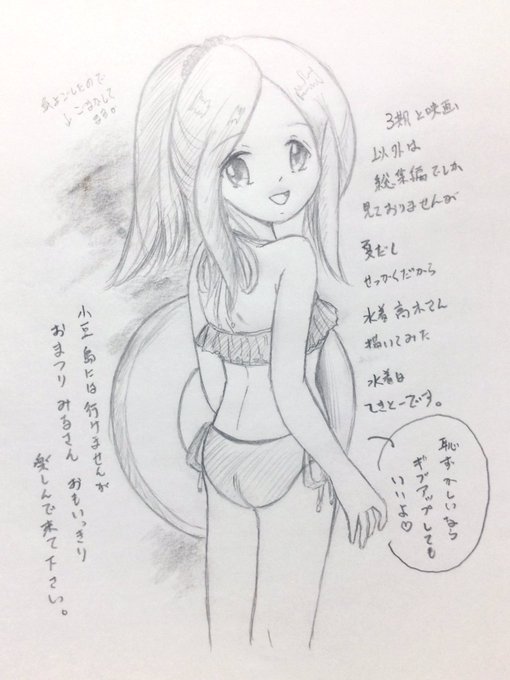 紙よごしたので
↓ごまかして
ます。
3期と映画
以外は
総集編でしか
見ておりませんが
夏だし
せっかくだから
水着高木さん
描いてみた
水着は
てきとーです。
恥ずかしいなら
ギブアップしても
いいよ♡
小豆島には行けませんが
おまつりみるさん おもいっきり
楽しんで来て下さい。